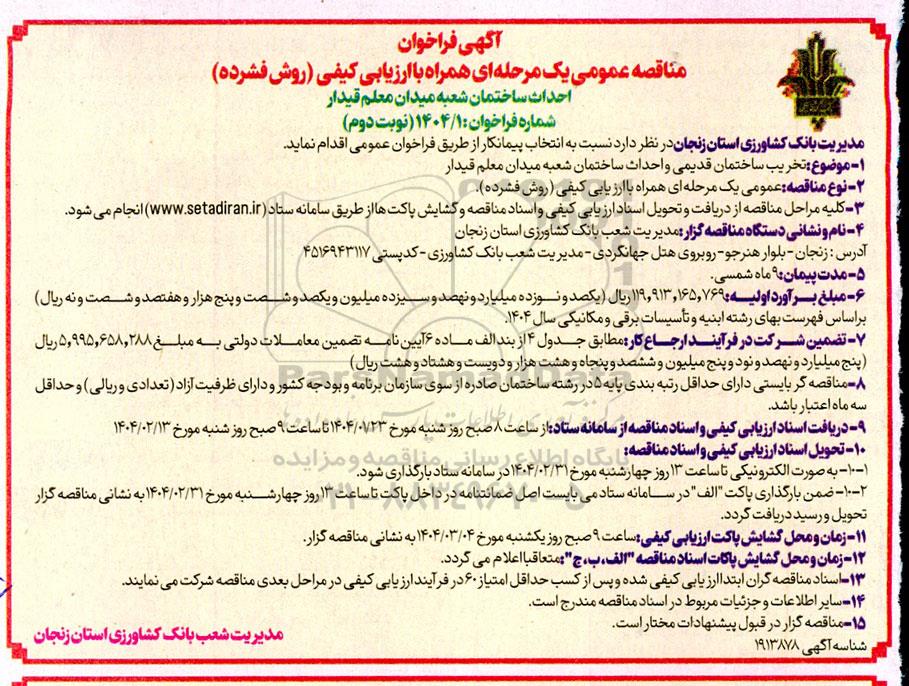 آگهی فراخوان
مناقصه عمومی یک مرحله‌ای همراه با ارزیابی کیفی (روش فشرده)
احداث ساختمان شعبه میدان معلم قیدار
شماره فراخوان: ۱۴۰۴/۱ (نوبت دوم)
مدیریت بانک کشاورزی استان زنجان در نظر دارد نسبت به انتخاب پیمانکار از طریق فراخوان عمومی اقدام نماید.
۱- موضوع: تخریب ساختمان قدیمی و احداث ساختمان شعبه میدان معلم قیدار
۲- نوع مناقصه: عمومی یک مرحله ای همراه با ارزیابی کیفی (روش فشرده).
۳- کلیه مراحل مناقصه از دریافت و تحویل اسناد ارزیابی کیفی و اسناد مناقصه و گشایش پاکت ها از طریق سامانه ستاد (www.setadiran.ir) انجام می شود.
۴- نام و نشانی دستگاه مناقصه گزار: مدیریت شعب بانک کشاورزی استان زنجان
آدرس: زنجان - بلوار هنرجو - روبروی هتل جهانگردی - مدیریت شعب بانک کشاورزی - کدپستی ۴۵۱۶۹۴۳۱۱۷
۵- مدت پیمان: ۹ ماه شمسی.
۶- مبلغ برآورد اولیه: ۱۱۹,۹۱۳,۱۶۵,۷۶۹ ریال (یکصد و نوزده میلیارد و نهصد و سیزده میلیون و یکصد و شصت و پنج هزار و هفتصد و شصت و نه ریال)
براساس فهرست بهای رشته ابنیه و تأسیسات برقی و مکانیکی سال ۱۴۰۴
۷- تضمین شرکت در فرآیند ارجاع کار: مطابق جدول ۴ از بند الف ماده ۶ آیین نامه تضمین معاملات دولتی به مبلغ ۵,۹۹۵,۶۵۸,۲۸۸ ریال
(پنج میلیارد و نهصد و نود و پنج میلیون و ششصد و پنجاه و هشت هزار و دویست و هشتاد و هشت ریال)
۸- مناقصه گر بایستی دارای حداقل رتبه بندی پایه ۵ در رشته ساختمان صادره از سوی سازمان برنامه و بودجه کشور و دارای ظرفیت آزاد (تعدادی و ریالی) و حداقل
سه ماه اعتبار باشد.
۹- دریافت اسناد ارزیابی کیفی و اسناد مناقصه از سامانه ستاد: از ساعت ۸ صبح روز شنبه مورخ ۱۴۰۴/۰۷۲۳ تا ساعت ۹ صبح روز شنبه مورخ ۱۴۰۴/۰۲/۱۳
۱۰- تحویل اسناد ارزیابی کیفی و اسناد مناقصه:
۱-۱۰- به صورت الکترونیکی تا ساعت ۱۳ روز چهارشنبه مورخ ۱۴۰۴/۰۲/۳۱ در سامانه ستاد بارگذاری شود.
۲-۱۰- ضمن بارگذاری پاکت "الف" در سامانه ستاد می بایست اصل ضمانتنامه در داخل پاکت تا ساعت ۱۳ روز چهارشنبه مورخ ۱۴۰۴/۰۲/۳۱ به نشانی مناقصه گزار
تحویل و رسید دریافت گردد.
۱۱- زمان و محل گشایش پاکت ارزیابی کیفی: ساعت ۹ صبح روز یکشنبه مورخ ۱۴۰۴/۰۳/۰۴ به نشانی مناقصه گزار.
۱۲- زمان و محل گشایش پاکات اسناد مناقصه "الف، ب، ج": متعاقبا اعلام می گردد.
۱۳- اسناد مناقصه گران ابتدا ارزیابی کیفی شده و پس از کسب حداقل امتیاز ۶۰ در فرآیند ارزیابی کیفی در مراحل بعدی مناقصه شرکت می نمایند.
۱۴- سایر اطلاعات و جزئیات مربوط در اسناد مناقصه مندرج است.
۱۵- مناقصه گزار در قبول پیشنهادات مختار است.
شناسه آگهی ۱۹۱۳۸۷۸
مدیریت شعب بانک کشاورزی استان زنجان
ParsNamadData
پایگاه اطلاع رسانی مناقصه و مزایده